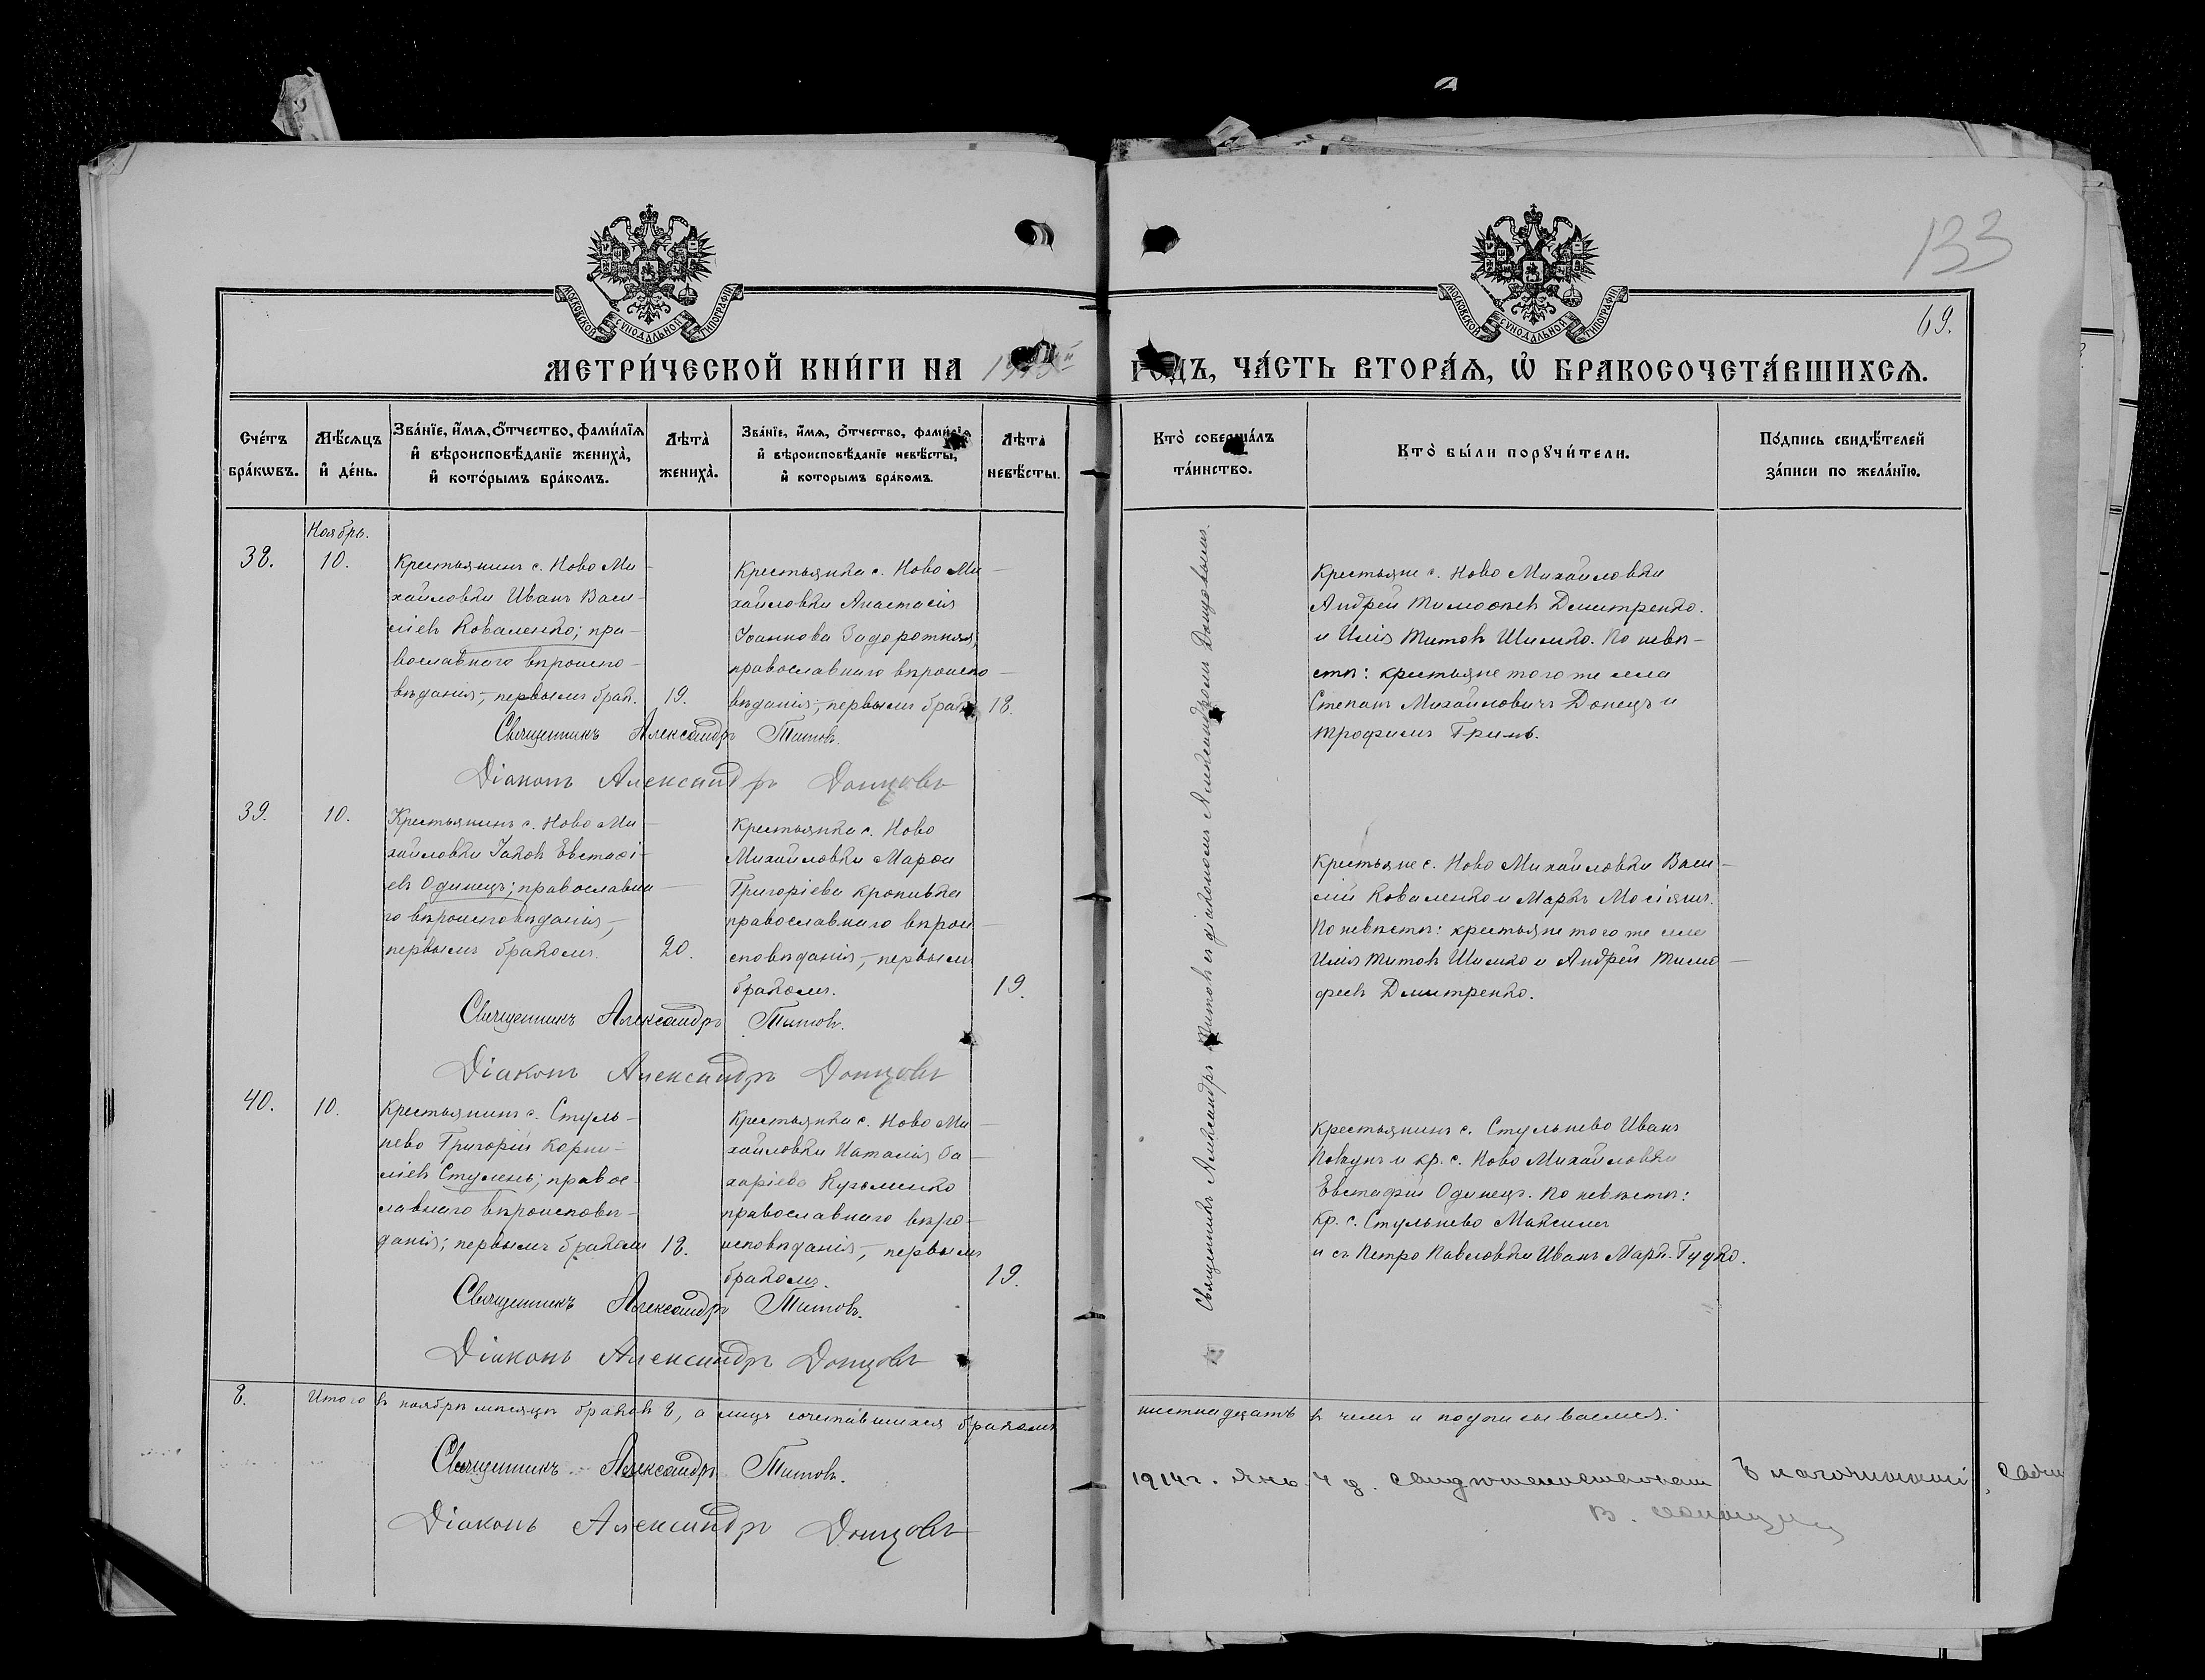 133
69.
МОСКОВСКОЙ СѴНОДАЛЬНОЙ ТИПОГРАФІИ
МОСКОВСКОЙ СѴНОДАЛЬНОЙ ТИПОГРАФІИ
МЕТРИ́ЧЕСКОЙ КНИ́ГИ НА
ГОДЪ, ЧА́СТЬ ВТОРА́Ѧ, Ѡ҆ БРАКОСОЧЕТА́ВШИХСѦ.
Сче́тъ бра́кѡвъ.
Мѣ́сяцъ и҆ де́нь.
Зва́нїе, и҆́мѧ, ѻ҆́тчество, фами́лїѧ
и҆ вѣроисповѣ́данїе жениха̀,
и҆ кото́рымъ бра́комъ.
Лѣта̀ жениха̀.
Зва́нїе, и҆́мѧ, ѻ҆́тчество, фами́лїѧ
и҆ вѣроисповѣ́данїе невѣ́сты,
и҆ которымъ бра́комъ.
Лѣта̀ невѣ́сты.
Кто̀ соверша́лъ та́инство.
Кто̀ бы́ли порꙋчи́тели.
По́дпись свидѣ́телей
за́писи по жела́нїю.
Ноябрь.
38.
10.
Крестьянинъ с. Ново Ми-
хайловки Иванъ Васи-
ліевъ Коваленко; пра-
вославнаго вѣроиспо-
вѣданія, первымъ брак.
19.
Крестьянка с. Ново Ми-
хайловки Анастасія
Іоаннова Задорожняя,
православнаго вѣроиспо-
вѣданія, первымъ брак.
18.
Крестьяне с. Ново Михайловки
Андрей Тимофеев Дмитренко
и Илія Титов Шимко. По невѣ-
стѣ: крестьяне того же села
Степанъ Михайловичъ Донецъ и
Трофимъ Гринь.
Священникъ Александръ Титовъ.
Діаконъ Александръ Донцовъ
39.
10.
Крестьянинъ с. Ново Ми-
хайловки Іаков Евстафі-
евъ Одинецъ; православна-
го вѣроисповѣданія,
первымъ бракомъ.
20.
Крестьянка с. Ново
Михайловки Марфа
Григоріева Кропивка
православнаго вѣрои-
сповѣданія, первымъ
бракомъ.
19.
Крестьяне с. Ново Михайловки Васи-
лій Коваленко и Маркъ
По невѣстѣ: крестьяне того же села
Илія Титов Шимко и Андрей Тимо-
феев Дмитренко.
Священникъ Александръ Титовъ.
Діаконъ Александръ Донцовъ
40.
10.
Крестьянинъ с. Стуль-
нево Григорій Корни-
ліев Стулень; правос-
лавнаго вѣроисповѣ-
данія; первымъ бракомъ
18.
Крестьянка с. Ново Ми-
хайловки Наталія За-
харіева Кузьменко
православнаго вѣро-
исповѣданія, первымъ
бракомъ.
19.
Крестьянинъ с. Стульнево Иванъ
и кр. с. Ново Михайловки
Евстафій Одинецъ. По невѣстѣ:
кр. с. Стульнево Максимъ
и съ Петро Павловки Иванъ Марк. Гудко.
Священникъ Александръ Титовъ.
Діаконъ Александръ Донцовъ
Священникъ Александръ Титовъ съ діакономъ Александромъ Донцовымъ.
8.
Итого в ноябрѣ мѣсяцѣ браков 8, а лицъ сочетавшихся бракомъ
шестнадцать в чемъ и подписываемся:
Священникъ Александръ Титовъ.
Діаконъ Александръ Донцовъ
1914 г. Янв. 4 д.